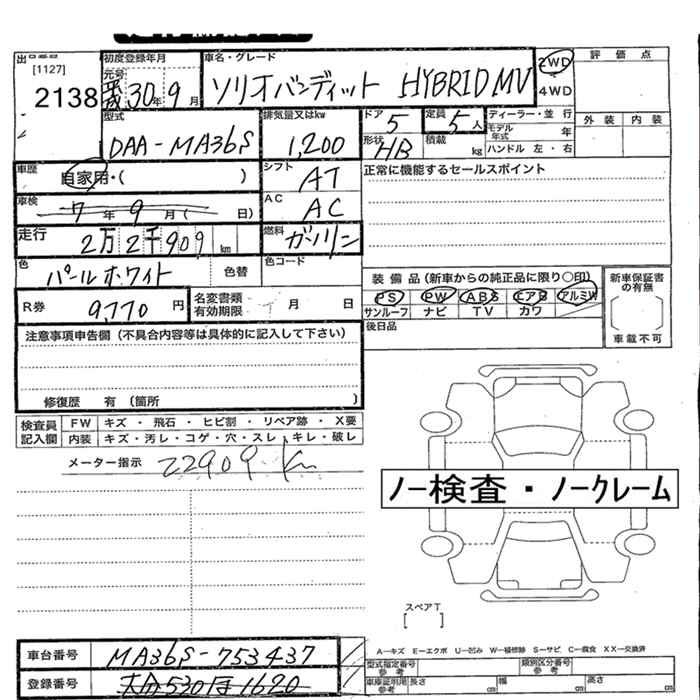 出品番号 [1127] 2138
初度登録年月 元号 平成 30年 9月
車名・グレード ソリオバンディット HYBRID MV
2WD
4WD
評価点
外装 内装
型式 DAA-MA36S
排気量又はkw 1,200
ドア 5
定員 5人
ディーラー・並行
モデル年式 年
形状 HB
積載 kg
ハンドル 左・右
車歴 自家用・( )
シフト AT
正常に機能するセールスポイント
車検 7年 9月( 日)
AC AC
走行 2万2千909km
燃料 ガソリン
色 パールホワイト 色替
色コード
R券 9,770円
名変書類有効期限 月 日
装備品(新車からの純正品に限り○印)
PS PW ABS エアB アルミW
サンルーフ ナビ TV カワ
後日品
新車保証書の有無
車載不可
注意事項申告欄(不具合内容等は具体的に記入して下さい)
修復歴 有(箇所 )
検査員記入欄
FW キズ・飛石・ヒビ割・リペア跡・X要
内装 キズ・汚レ・コゲ・穴・スレ・キレ・破レ
メーター指示 22909 Km
ノー検査・ノークレーム
スペアT
[ ]
A—キズ E—エクボ U—凹み W—補修跡 S—サビ C—腐食 XX—交換済
車台番号 MA36S-753437
登録番号 大分530ほ1620
型式指定番号 参考
類別区分番号 参考
車庫証明用 参考 長さ cm 幅 cm 高さ cm